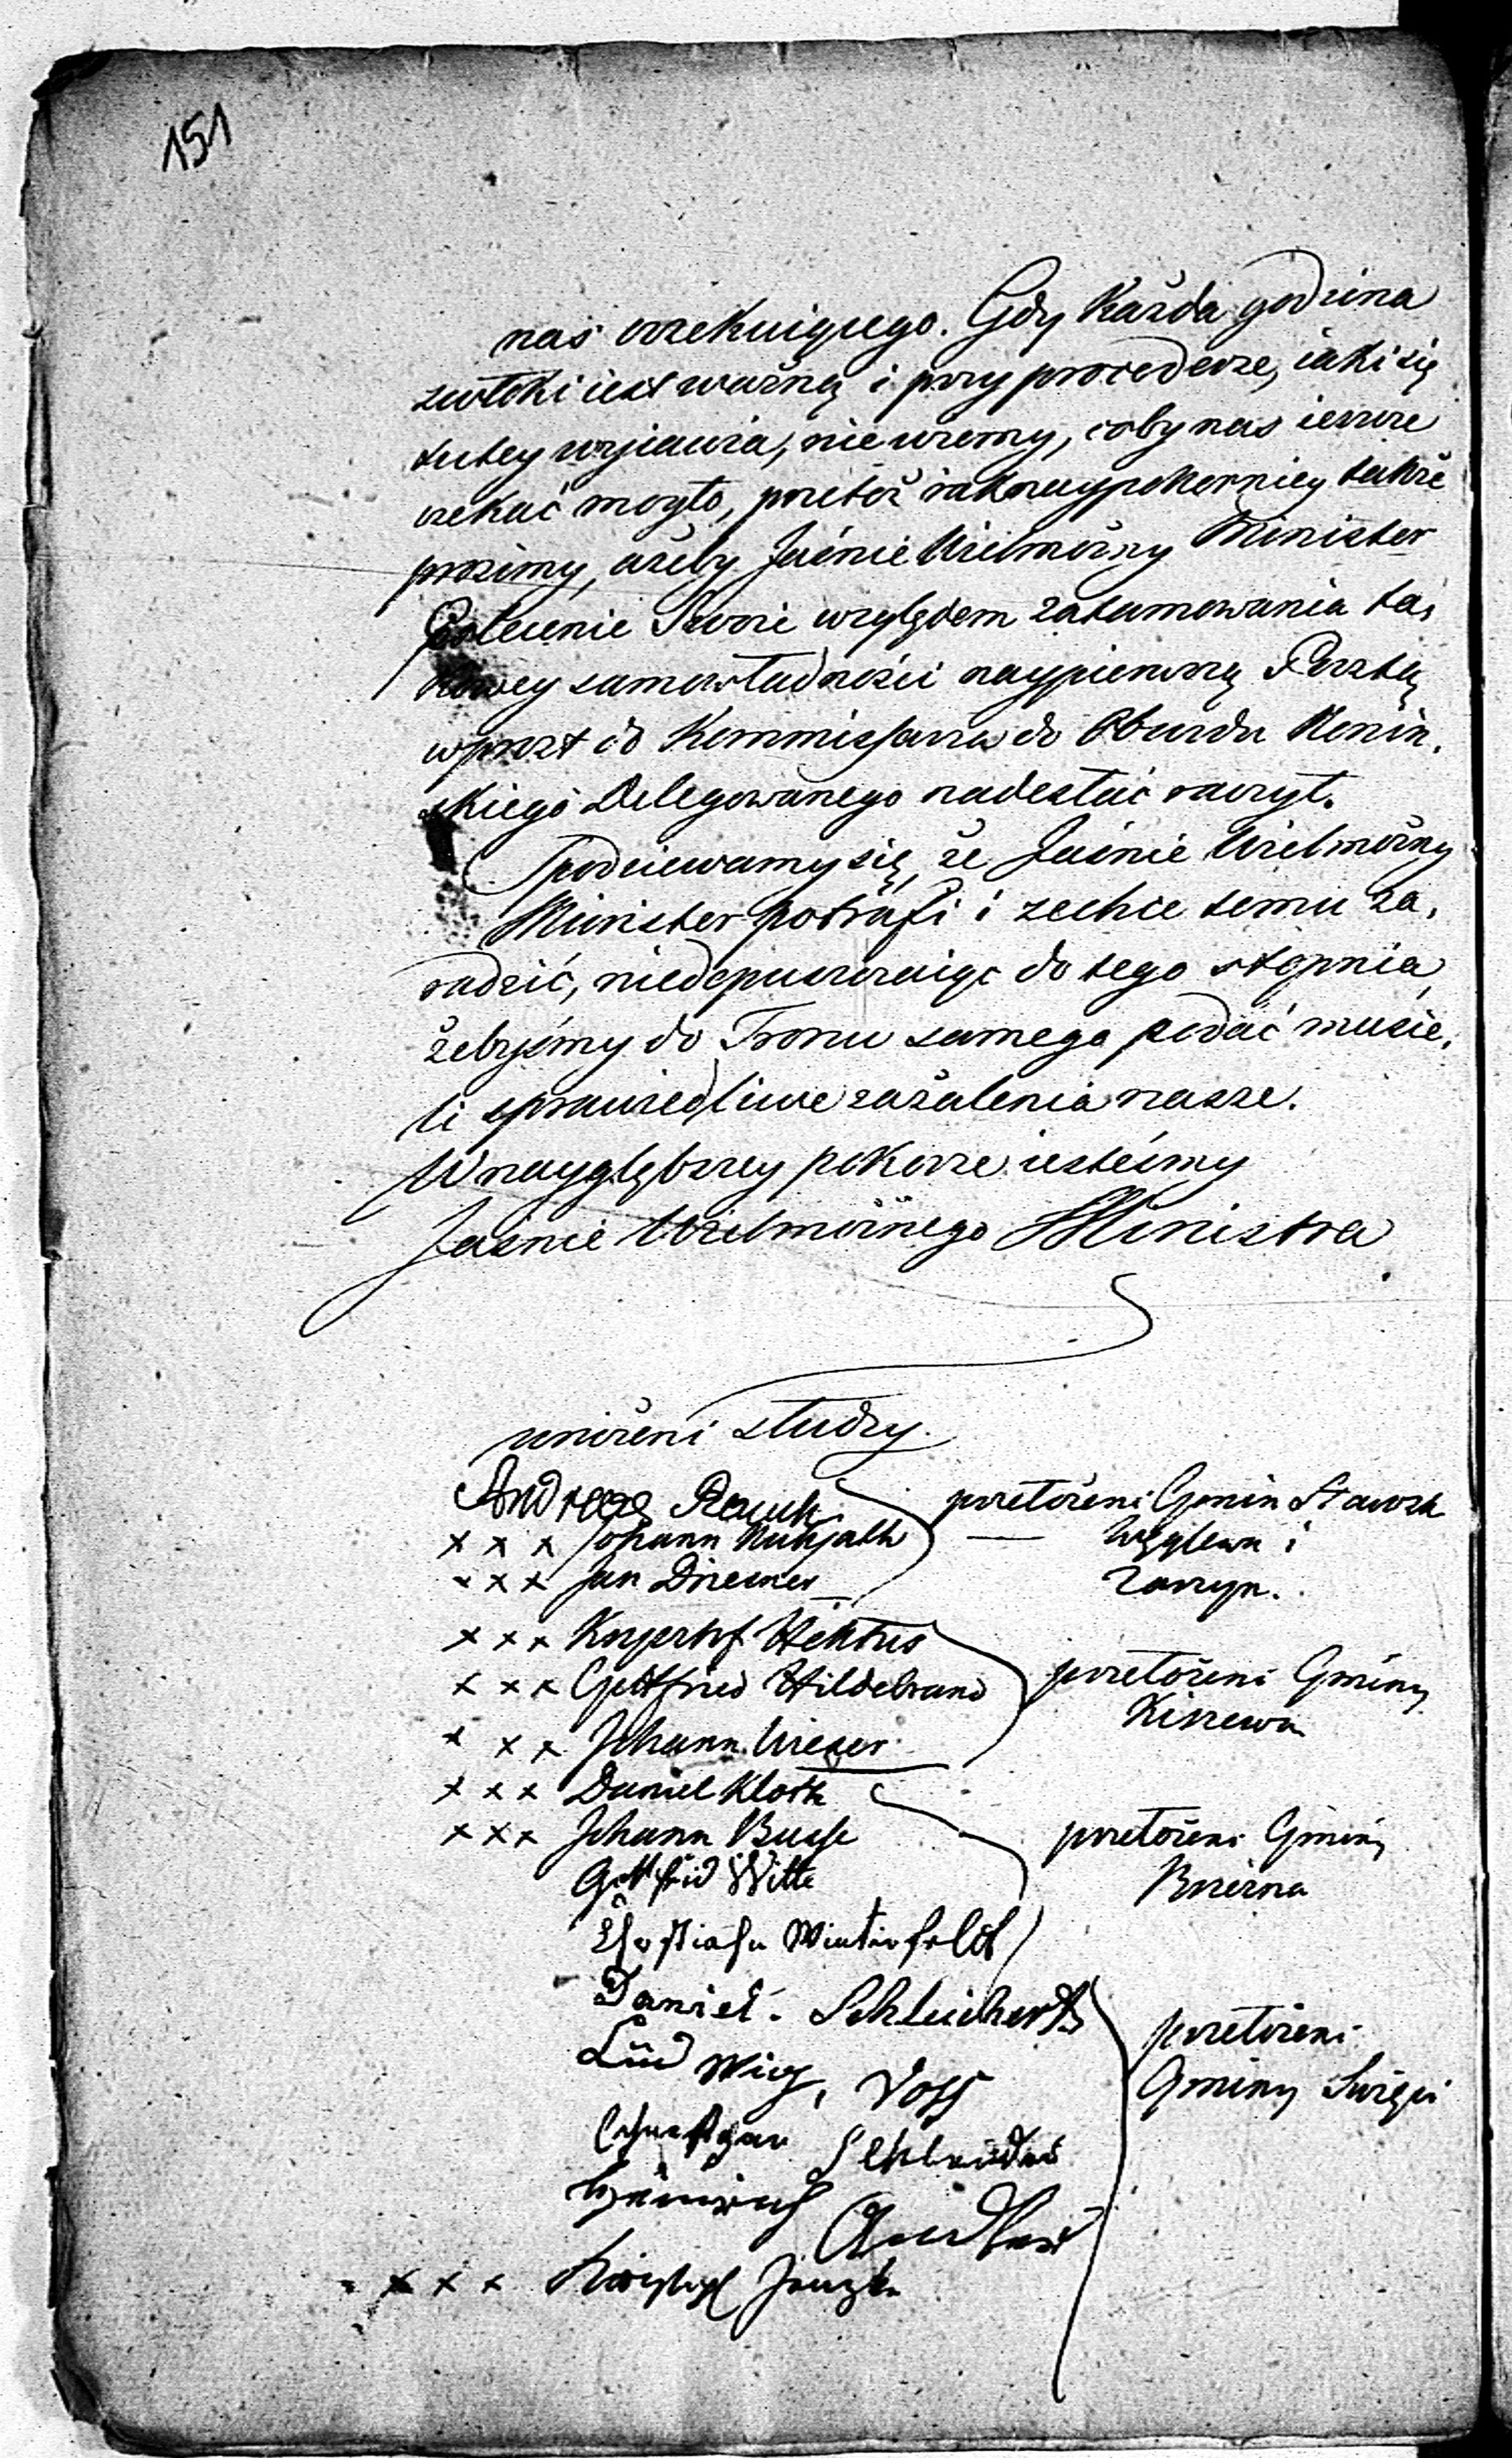 151
nas oczekuiącego. Gdy każda godzina
zwłoki iest ważną i przy procederze, iaki się
tutey wyiawia, nie wiemy, coby nas ieszcze
czekać mogło, przetoż iaknaypokorniey także
prosimy, ażeby Jaśnie Wielmożny Minister
Polecenie Swoie względem zatamowania ta,
kowey samowładności naypierwszą Pocztą
wprost do Kommissarza do Obwodu Konin,
skiego Delegowanego nadesłać raczył.
Spodziewamy się, że Jaśnie Wielmożny
Minister potrafi i zechce temu za,
radzić, niedopuszczaiąc do tego stopnia,
żebyśmy do Tronu samego podać musie,
li sprawiedliwe zażalenia nasze.
W naygłębszey pokorze iesteśmy
Jaśnie Wielmożnego Ministra
uniżeni słudzy.
Andreas Rauk
x x x Johann
x x x Jan Driesner
przełożeni Gmin Stawisk
Węglewa i
x x x Krysztof Hektus
x x x Gottfried Hildebrand
x x x Johann Wieser
przełożeni Gminy
Kiszewa
x x x Daniel Klotk
x x x Johann Busse
Gottfrid Witte
Winterfeldt
przełożeni Gminy
Brzezna
Daniel. Schleichert
Lüdwig, Voss
przełożeni
Gminy Święci
x x x